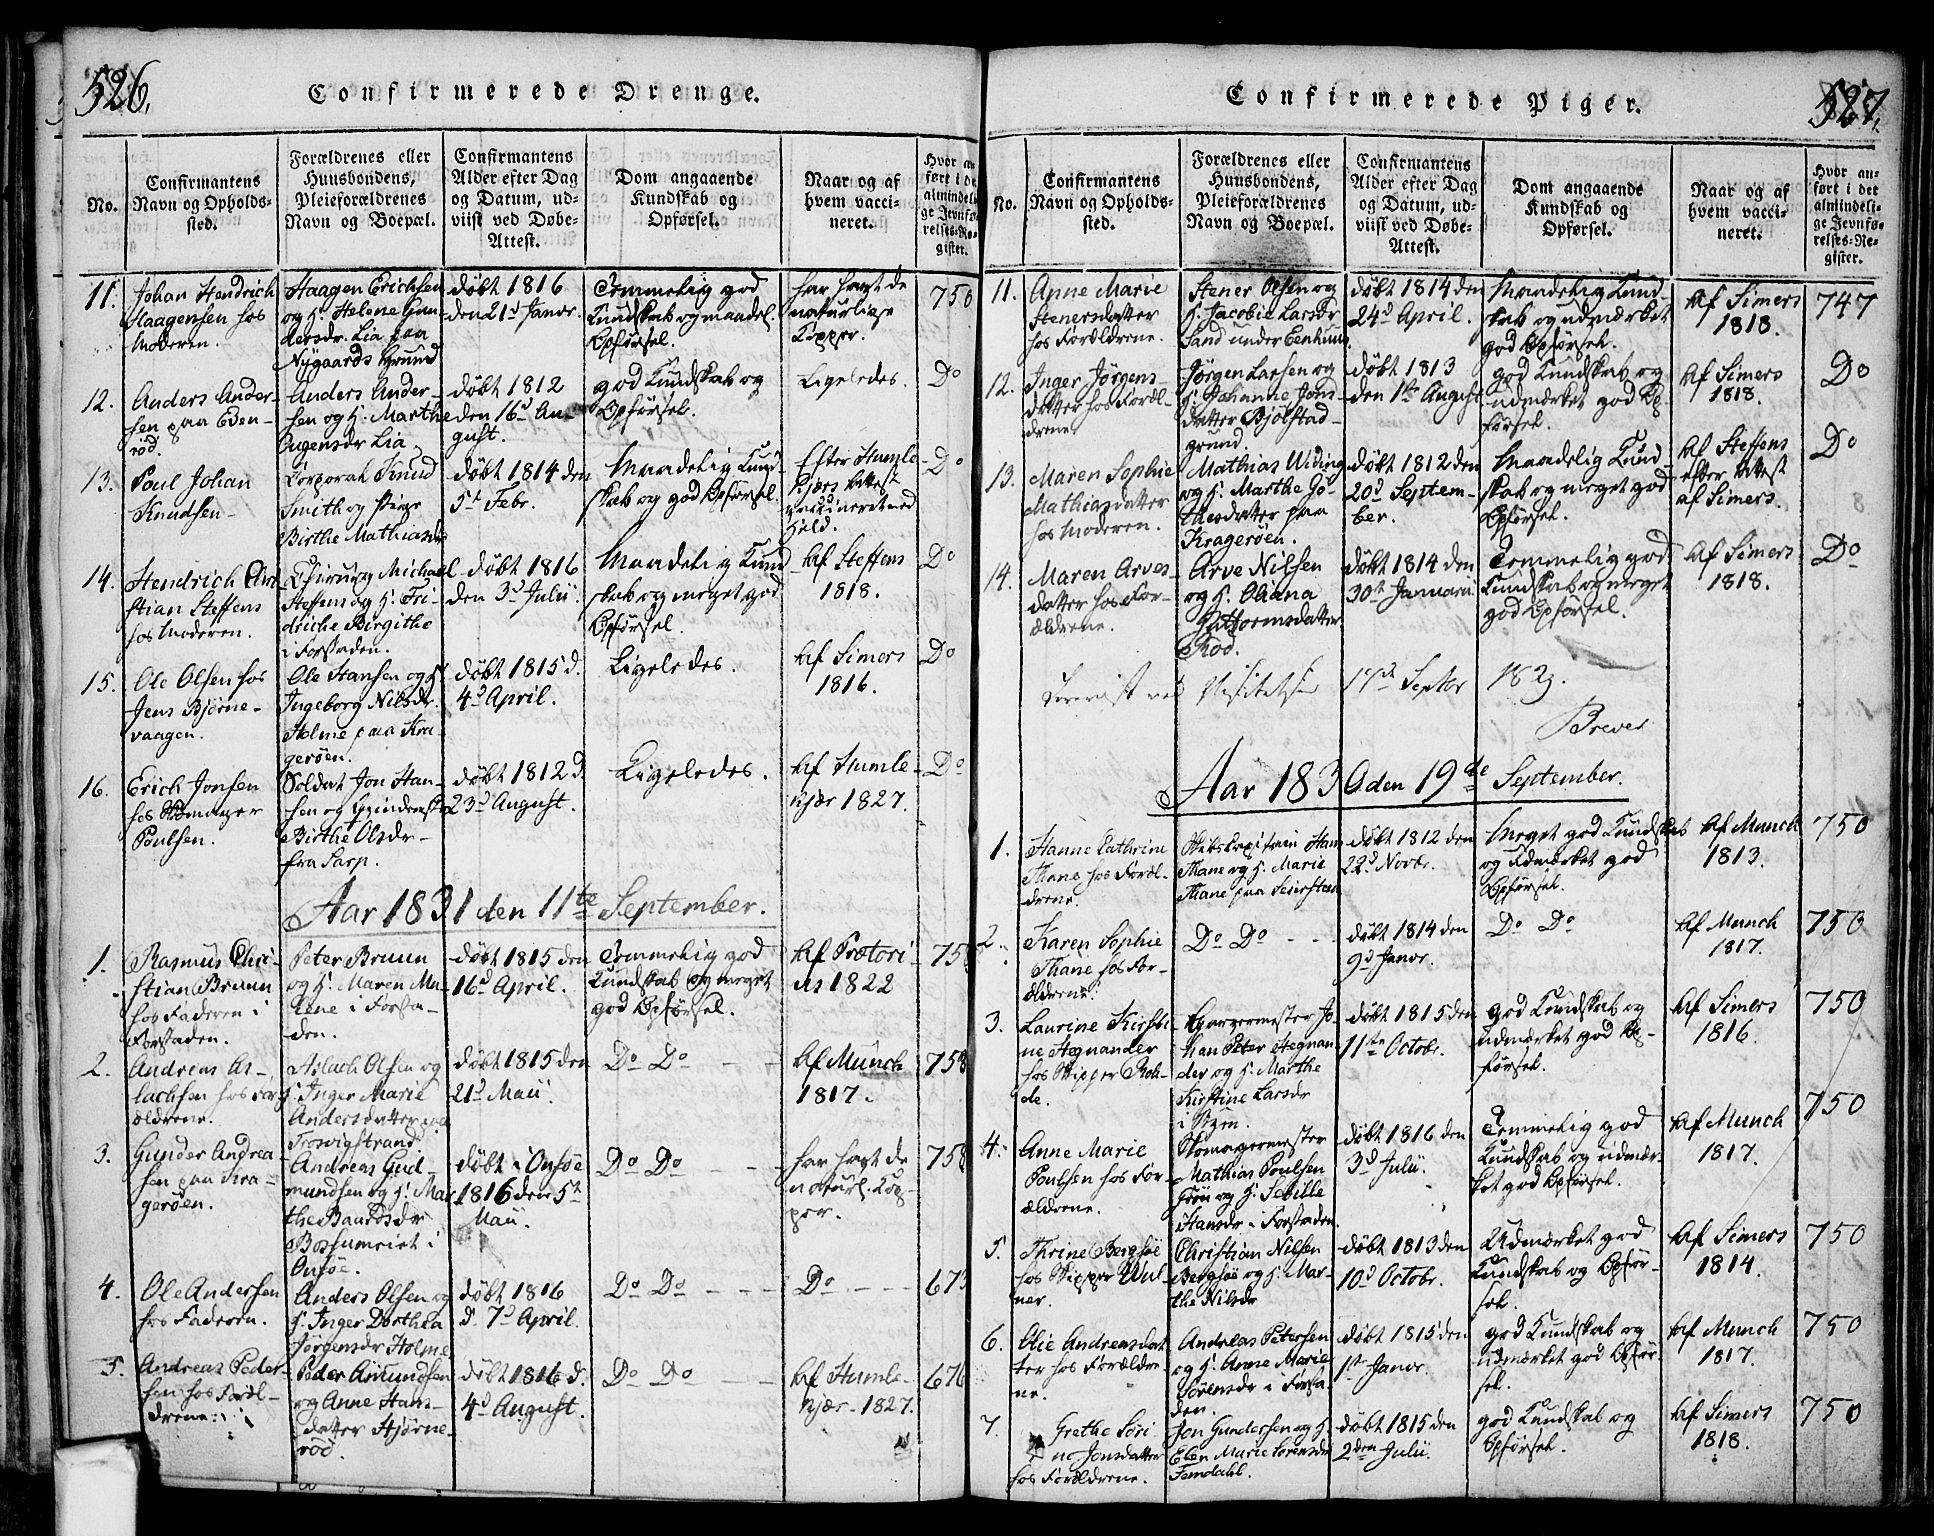 526.
Confirmerede Drenge.
No.
Confirmantens
Navn og Opholds-
sted.
Forældrenes eller
Huusbondens,
Pleieforældrenes
Navn og Boepæl.
Confirmantens
Alder efter Dag
og Datum, ud-
viist ved Døbe-
Attest.
Dom angaaende
Kundskab og
Opførsel.
Naar og af
hvem vacci-
neret.
Hvor an-
ført i det
almindeli-
ge Jevnfø-
relses-Re-
gister.
11.
Johan Hendrich
Haagensen hos
Moderen.
Haagen Erichsen
og H. Helene Gun
dersdr. Lia paa
Nygaards Grund
døbt 1816
den 21d Janvr.
Temmelig god
Kundskab og maadel.
Opførsel.
har havt de
naturlige
Kopper.
750
12.
Anders Ander-
sen paa Eden-
rød.
Anders Ander-
sen og H. Marthe
Lia
døbt 1812
den 16d Au-
gust.
god Kundskab og
Opførsel.
Ligeledes.
Do
13.
Poul Johan
Knudsen
Corporal Knud
Smith og Pige
Birthe Mathiasdr
døbt 1814 den
5t Febr.
Maadelig Kund
skab og god Opførsel.
Efter Humle-
kjærs Attest
vaccineret med
Held.
Do
14.
Hendrich Chri
stian Steffens
hos Moderen.
Chirurg Michael
Steffens og H. Fri-
driche Birgithe
i Forstaden.
døbt 1816
den 3d Julii.
Maadelig Kund
skab og meget god
Opførsel.
Af Steffens
1818.
Do
15.
Ole Olsen hos
Jens Bjørne-
vaagen.
Ole Hansen og H.
Ingeborg Nilsdr.
Holme paa Kra
gerøen.
døbt 1815 d.
4d April.
Ligeledes.
Af Simers
1816.
Do
16.
Erich Jonsen
hos
Poulsen.
Soldat Jon Han-
sen og Qvindemske
Birthe Olsdr
fra Sarp.
døbt 1812 d.
23d August.
Ligeledes.
Af Humle-
kjær 1827.
Do
Aar 1831 den 11te September.
1.
Rasmus Chri-
stian Bruun
hos Faderen i
Forstaden.
Peter Bruun
og H. Maren Ma-
lene i Forsta-
den.
døbt 1815 den
16d April.
Temmelig god
Kundskab og meget
god Opførsel.
Af Prætori-
us 1822
758
2.
Andreas As-
lachsen hos For
ældrene.
Aslach Olsen og
H. Inger Marie
Andersdatter paa
Trosvigstrand.
døbt 1815 den
21d Maii.
Do Do
Af Munch
1817.
758
3.
Gunder Andrea
sen paa Kra-
gerøen.
Andreas Gud-
mundsen og H. Mar
the Baardsdr
i
Onsøe.
døbt i Onsøe
1816 den 5t
Maii.
Do Do
har havt de
naturl. Kop-
per.
758
4.
Ole Andersen
hos Faderen.
Anders Olsen og
H. Inger Dorthea
Jørgensdr Holme
døbt 1816
d. 7d April.
Do Do
Do
673
5.
Andreas Peder-
sen hos Foræl-
drene.
Peder Amundsen
og Anne Hans-
datter Hjørne-
rød.
døbt 1816 d.
4d August.
Do Do
Af Humle-
kjær 1827.
676
527.
Confirmerede Piger.
No.
Confirmantens
Navn og Opholds-
sted.
Forældrenes eller
Huusbondens,
Pleieforældrenes
Navn og Boepæl.
Confirmantens
Alder efter Dag
og Datum, ud-
viist ved Døbe-
Attest.
Dom angaaende
Kundskab og
Opførsel.
Naar og af
hvem vacci-
neret.
Hvor an-
ført i det
almindeli-
ge Jevnfø-
relses-Re-
gister.
11.
Anne Marie
Stenersdatter
hos Forældrene.
Stener Olsen og
H. Jacobia Larsdr
Sand under Eenhuus
døbt 1814 den
24d April.
Maadelig Kund
skab og udmærket
god Opførsel.
Af Simers
1818.
747
12.
Inger Jørgens
datter hos Foræl
drene
Jørgen Larsen og
H. Johanne Jons
datter Bjølstad
grund
døbt 1813
den 1te August
god Kundskab og
udmærket god Op
førsel.
Af Simers
1818.
Do
13.
Maren Sophie
Mathiasdatter
hos Moderen.
Mathias Widing
og H. Marthe Jo-
hansdatter paa
Kragerøen.
døbt 1812 den
20d Septem-
ber.
Maadelig Kund
skab og meget god
Opførsel.
Af Steffens
efter Attest
af Simers.
Do
14.
Maren Arves-
datter hos For-
ældrene.
Arve Nilsen
og H. Oliana
Guttormsdatter
Rød.
døbt 1814 den
30te Januarii
Temmelig god
Kundskab og meget
god Opførsel.
Af Simers
1818.
Do
Foreviist ved Visitatsen 17de Septbr
Brever
Aar 1830 den 19de September.
1.
Hanne Cathrine
Thane hos Foræl
drene.
Skibskapitain Hans
Thane og H. Marie
Thane paa
døbt 1812 den
22d Novbr.
Meget god Kundskab
og Udmærket god
Opførsel.
Af Munch
1813.
750
2.
Karen Sophie
Thane hos For-
ældrene.
Do Do
døbt 1814 den
9d Janvr.
Do Do
Af Munch
1817.
750
3.
Laurine Kirsti-
ne Hegnander
hos Skipper Roh-
de.
Garvermester Jo-
han Peter Hegnan
der og H. Marthe
Kirstine Larsdr
i Byen.
døbt 1815 den
11te Octobr.
god Kundskab og
udmærket god Op-
førsel.
Af Simers
1816.
750
4.
Anne Marie
Poulsen hos For-
ældrene.
Skomagermester
Mathias Poulsen
Grøn og H. Sebille
Hansdr i Forstaden.
døbt 1816 den
3d Julii.
Temmelig god
Kundskab og udmær-
ket god Opførsel.
Af Munch
1817.
750
5.
Thrine Bergsøe
hos Skipper Wul-
ner.
Christian Nilsen
Bergsøe og H. Mar-
the Nilsdr
døbt 1813 den
10d Octobr.
Udmærket god
Kundskab og Opfør-
sel.
Af Simers
1814.
750
6.
Olie Andreasdat
ter hos Forældre-
ne.
Andreas Petersen
og H. Anne Marie
Sørensdr i Forsta-
den.
døbt 1815 den
1st Janvr.
god Kundskab og
udmærket god Opfør-
sel.
Af Munch
1817.
750
7.
Grethe Søri
ne Jonsdatter
hos Forældrene.
Jon Gundersen og H
Elen Marie Sørensdr
Femdahl.
døbt 1815 den
2den Julii.
god Kundskab og
Opførsel.
Af Simers
1818.
750